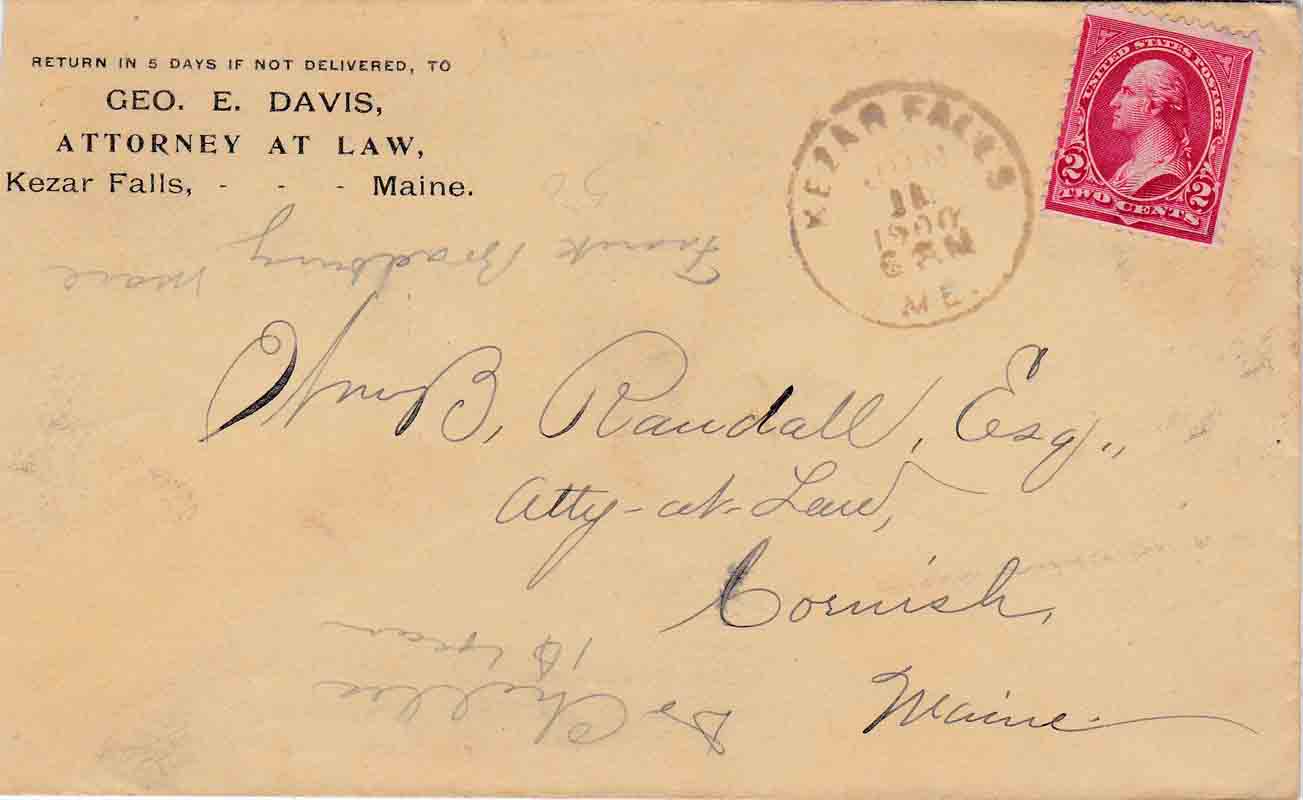 RETURN IN 5 DAYS IF NOT DELIVERED, TO
GEO. E. DAVIS,
ATTORNEY AT LAW,
Kezar Falls, - - - Maine.
KEZAR FALLS
1900
ME.
UNITED STATES POSTAGE
2 2
TWO CENTS
Frank Bradbury
Wm B, Randall, Esq.,
Atty-at-Law,
Cornish,
Maine.